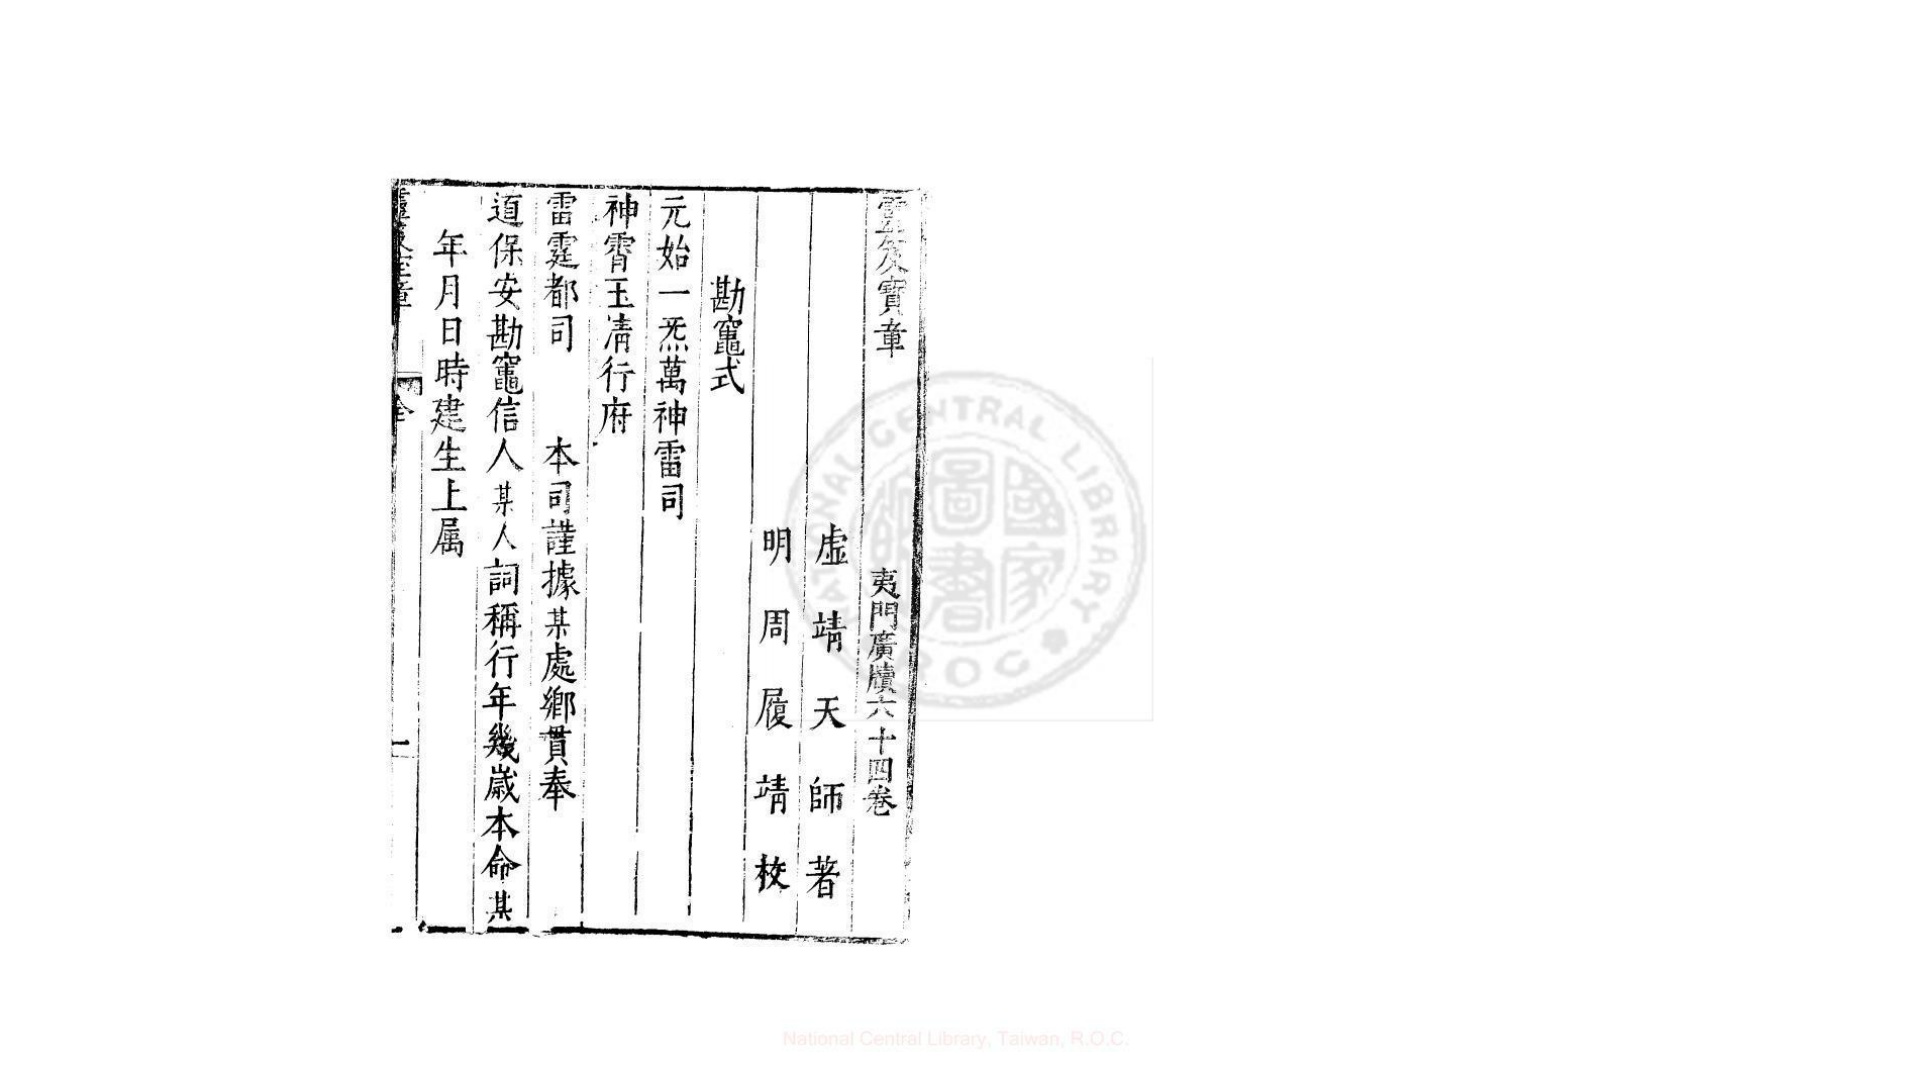 靈笈寶章
夷門廣牘六十四卷
虛靖天師著
明周履靖校
勘竈式
元始一炁萬神雷司
神霄玉清行府
雷霆都司　　本司謹據某處鄉貫奉
道保安勘竈信人某人詞稱行年幾歲本命某
年月日時建生上属
靈笈寶章
全
一
NATIONAL CENTRAL LIBRARY
R.O.C.
國家圖書館
National Central Library, Taiwan, R.O.C.